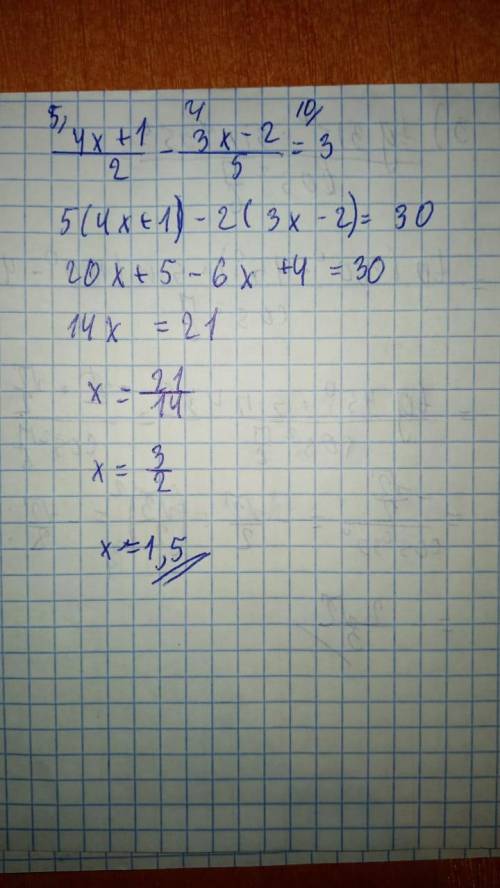 5, 4 10/
4x+1/2 - 3x-2/5 = 3
5(4x+1) - 2(3x-2) = 30
20x + 5 - 6x + 4 = 30
14x = 21
x = 21/14
x = 3/2
x = 1,5